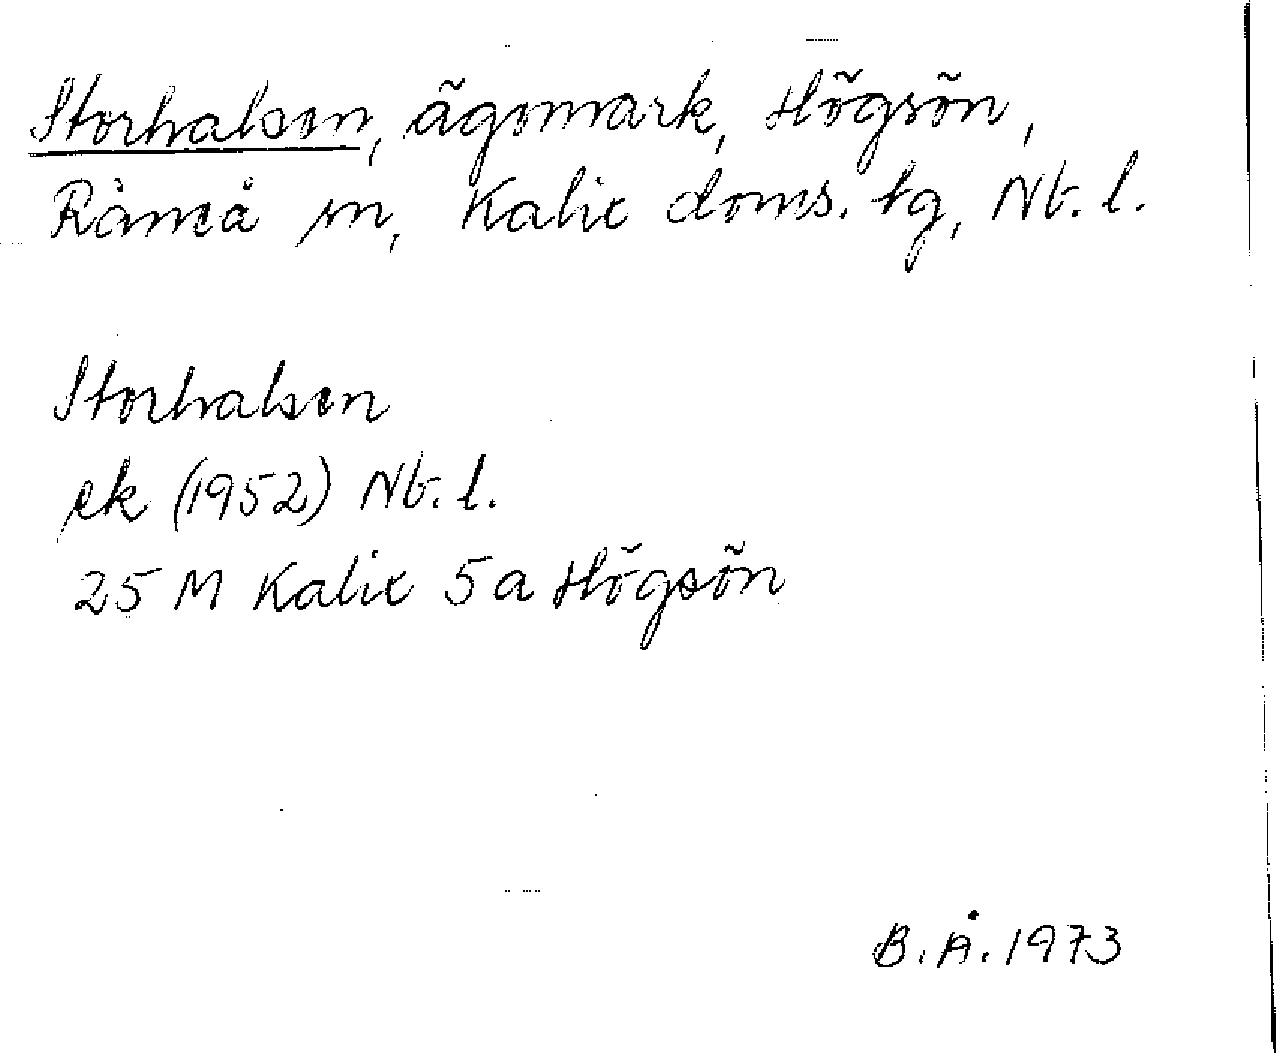 Storhalsen, ägomark, Högsön,
Råneå sn, Kalix doms. tg, Nb. l.
Storhalsen
ek (1952) Nb. l.
25 M Kalix 5a Högsön
B. Å. 1973